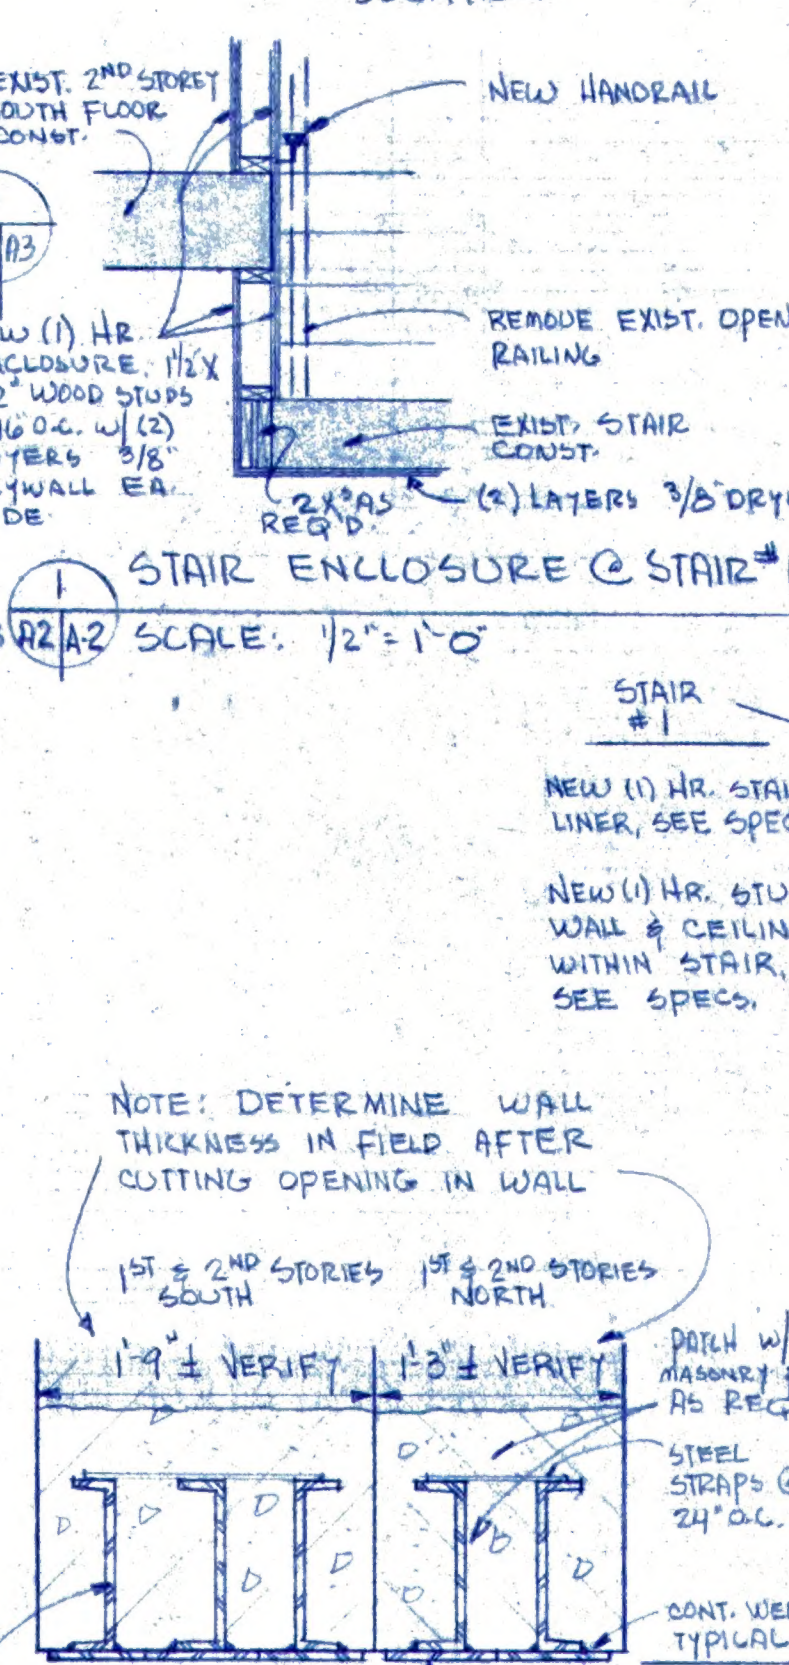 EXIST. 2ND STOREY
SOUTH FLOOR
CONST.
NEW HANDRAIL
A3
(1) HR.
1 1/2 X
WOOD STUDS
16" O.C. W/ (2)
3/8"
EA.
REMOVE EXIST. OPEN
RAILING
EXIST. STAIR
CONST.
2X'S AS
REQ'D.
(2) LAYERS 3/8"
1
A2 A-2
STAIR ENCLOSURE @ STAIR #
SCALE: 1/2" = 1'-0"
STAIR
# 1
NEW (1) HR.
LINER, SEE
NEW (1) HR.
WALL &
WITHIN STAIR,
SEE SPECS.
NOTE: DETERMINE WALL
THICKNESS IN FIELD AFTER
CUTTING OPENING IN WALL
1ST & 2ND STORIES
SOUTH
1ST & 2ND STORIES
NORTH
1'-9" ± VERIFY
1'-3" ± VERIFY
PATCH W/
MASONRY
AS
STEEL
STRAPS @
24" O.C.
CONT.
TYPICAL